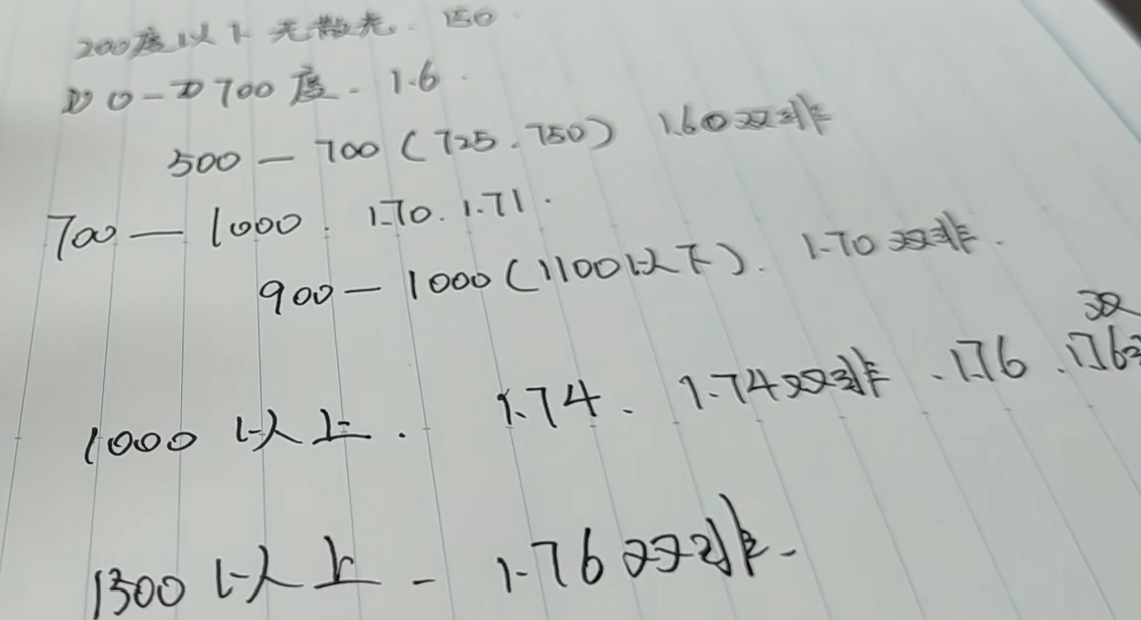 200度以下 无散光. 150
00-700度. 1.6.
500-700(725.750) 1.60双非
700-1000. 1.70. 1.71.
900-1000(1100以下). 1.70双非.
双
1000以上. 1.74. 1.74双非. 1.76. 1.76
1300以上- 1.76双非-